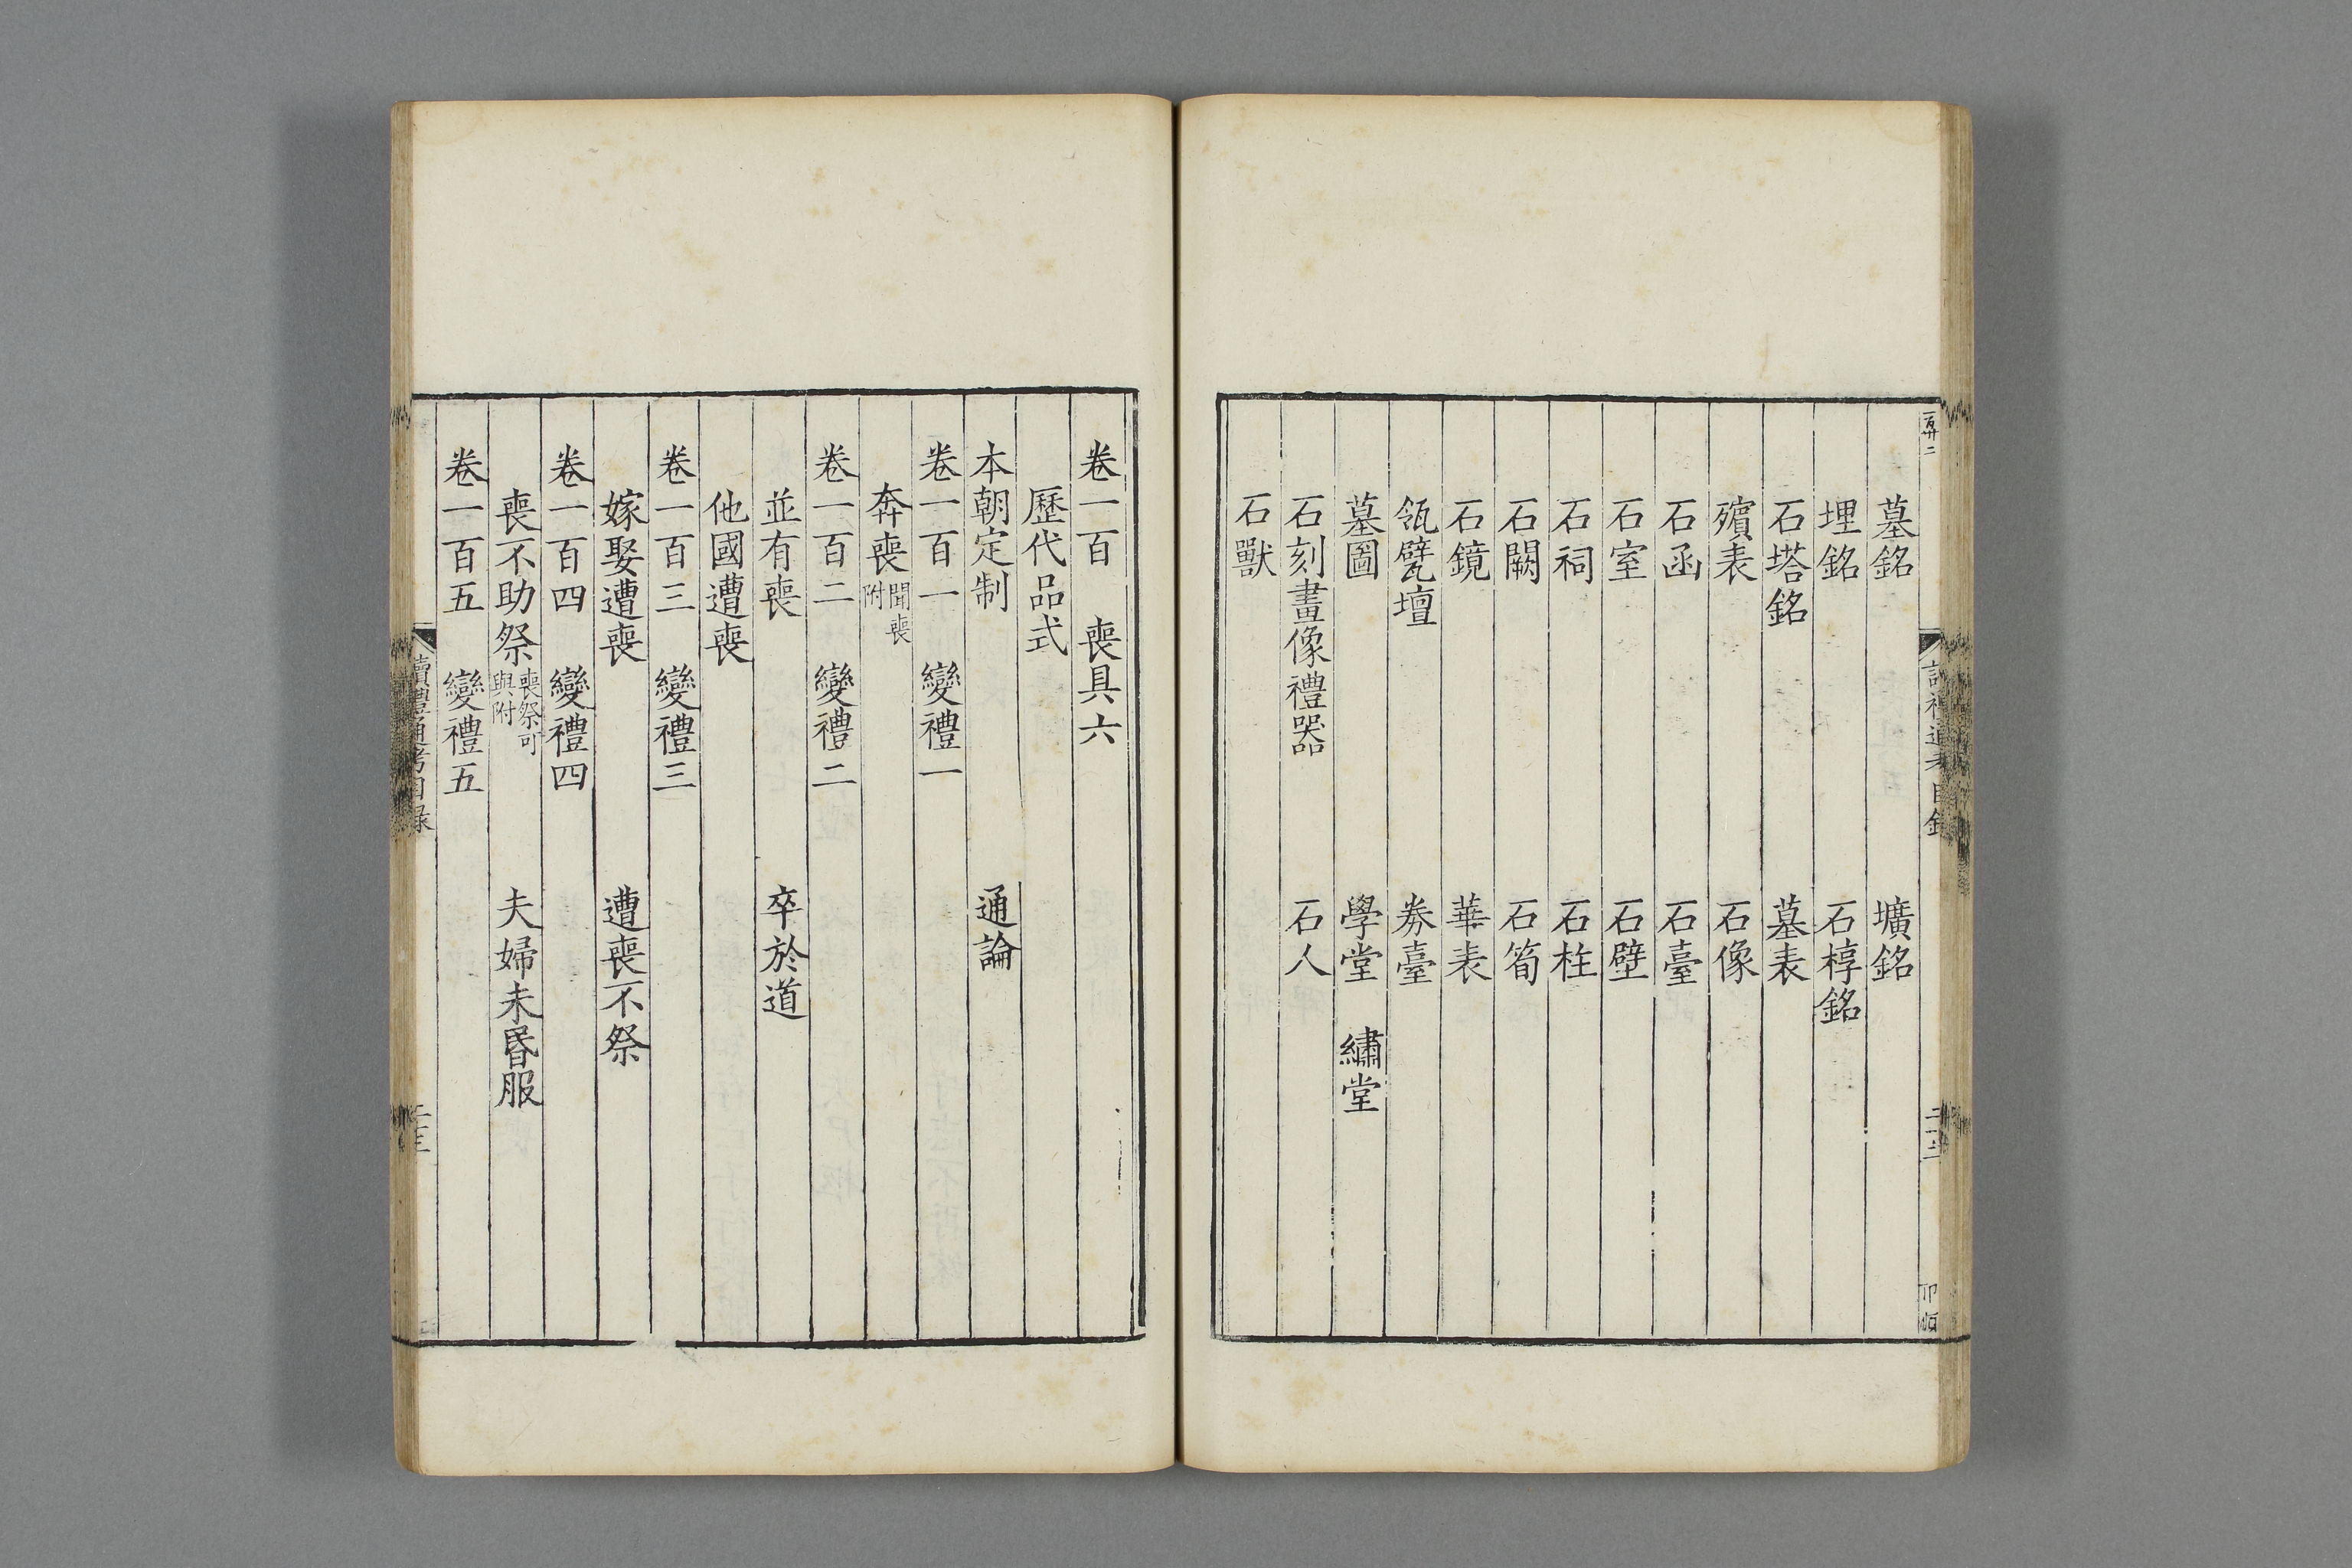 墓銘 壙銘
埋銘 石椁銘
石塔銘 墓表
殯表 石像
石函 石臺
石室 石壁
石祠 石柱
石闕 石筍
石鏡 華表
瓴甓壇 券臺
墓圖 學堂 繡堂
石刻畫像禮器 石人
石獸
卷一百 喪具六
歷代品式
本朝定制 通論
卷一百一 變禮一
奔喪聞喪附
卷一百二 變禮二
並有喪 卒於道
他國遭喪
卷一百三 變禮三
嫁娶遭喪 遭喪不祭
卷一百四 變禮四
喪不助祭喪祭可與附 夫婦未昏服
卷一百五 變禮五
讀禮通考目錄